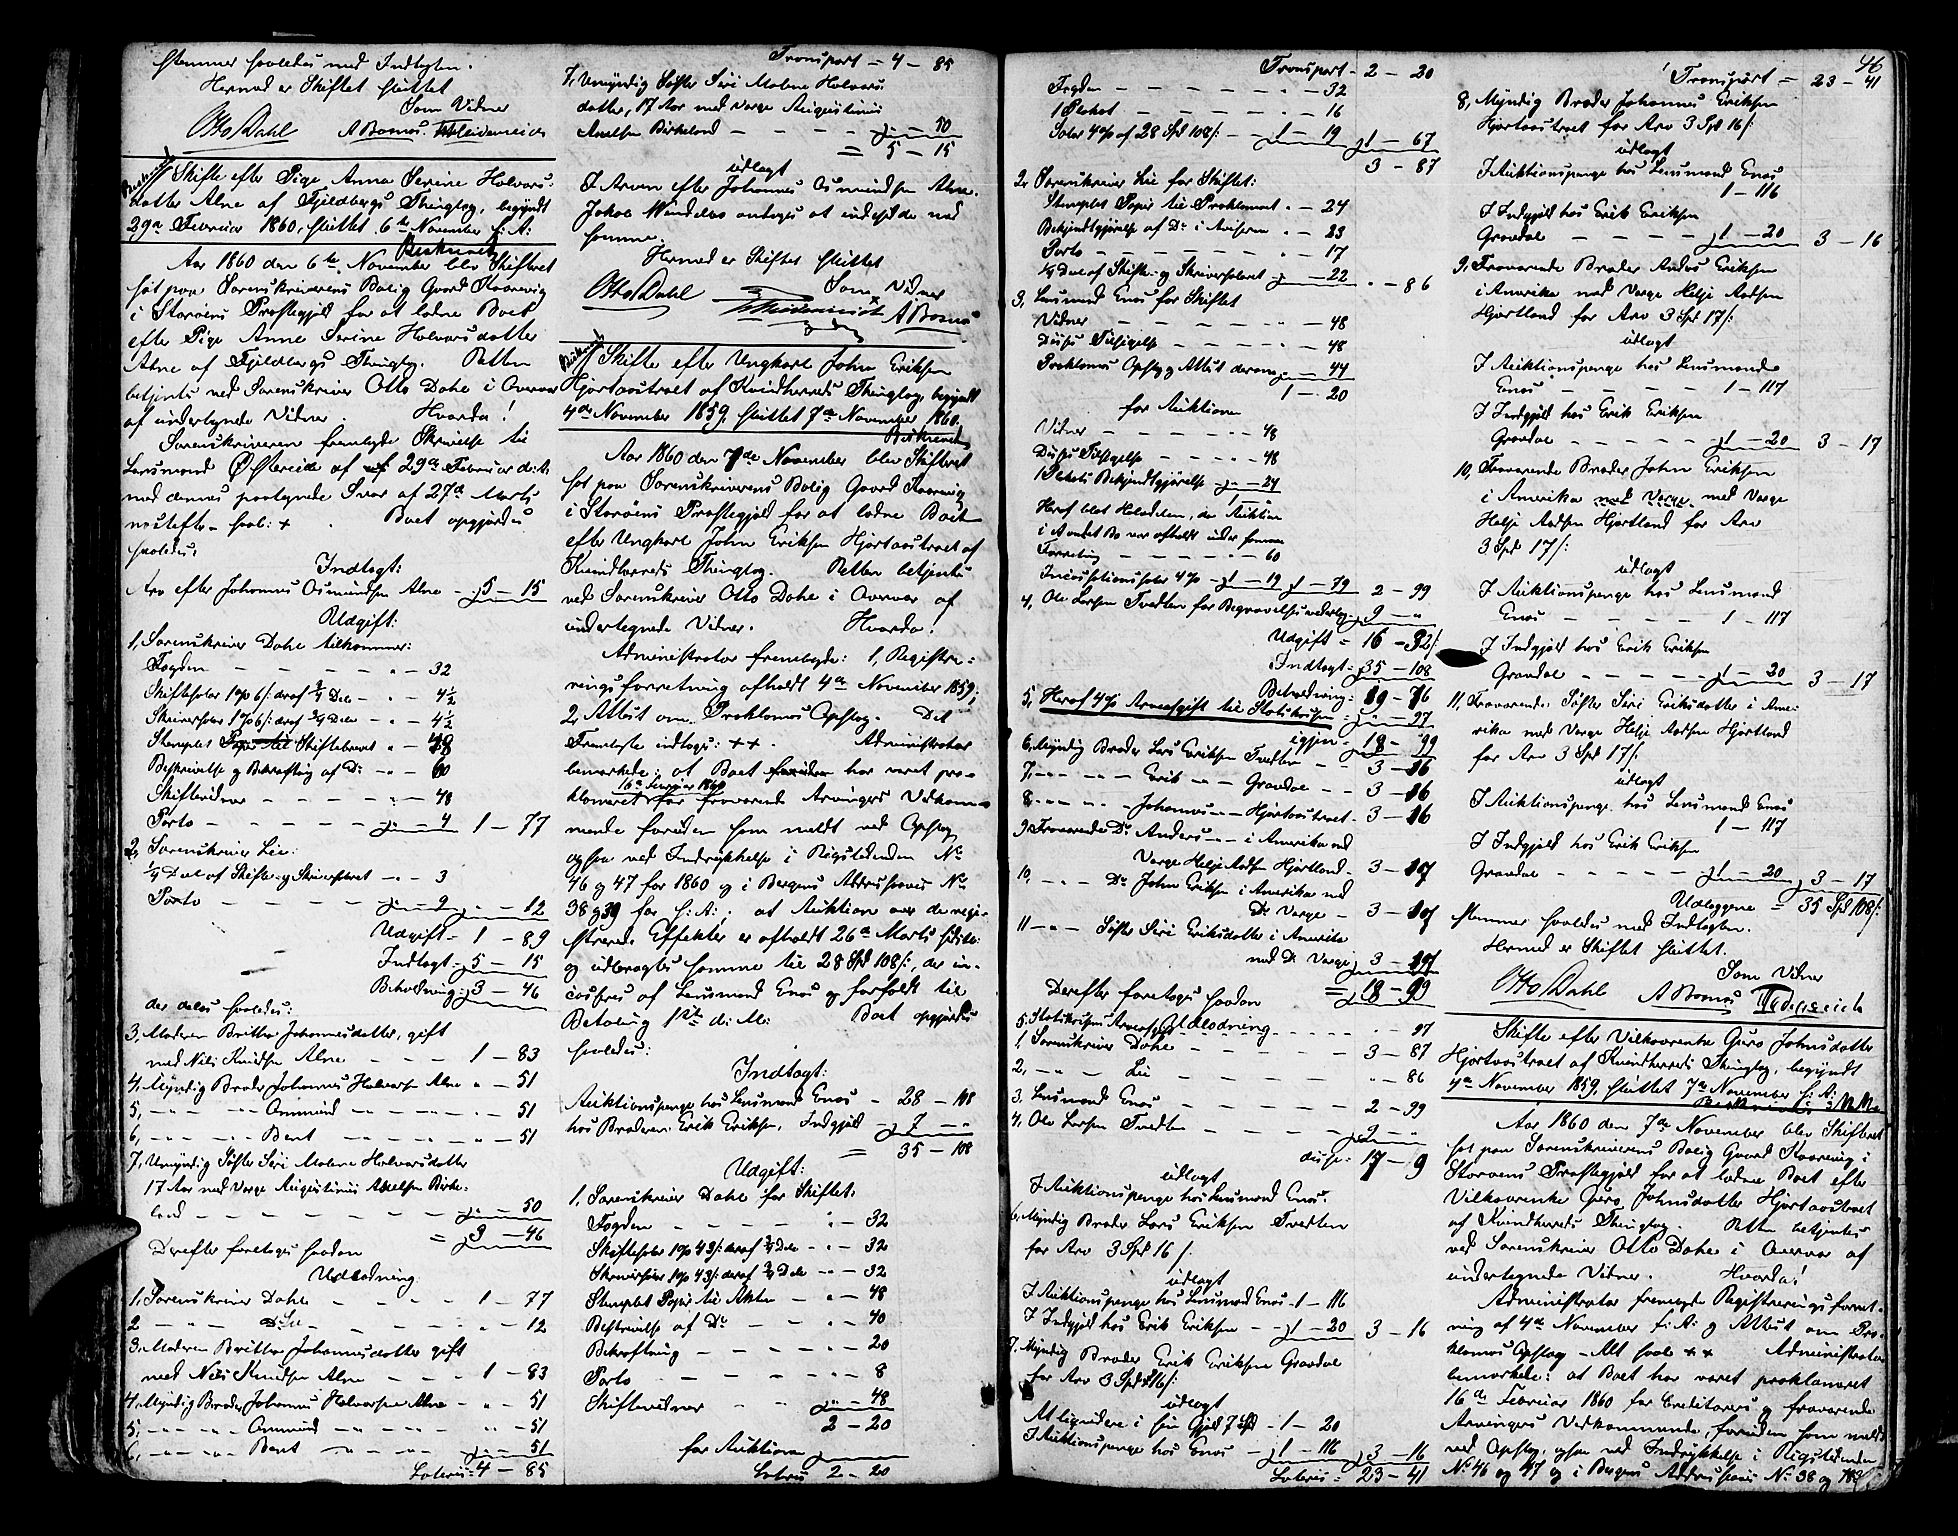 stemmer saaledes med Indtægten.
Hermed er Skiftet sluttet
Som Vidner
Otto Dahl A Bomus.
Skifte efter Pige Anna Serine Halvors-
datter Alne af Fjeldbergs Thinglag, begyndt
29de Februar 1860, sluttet 6te November s: A:
Beskrevet
Aar 1860 den 6te November blev Skifteret
sat paa Sorenskriverens Bolig Gaard
i Storøens Præstegjeld for at slutte Boet
efter Pige Anne Serine Halvorsdatter
Alne af Fjeldbergs Thinglag. Retten
betjentes ved Sorenskriver Otto Dahl i Overvær
af undertegnede Vidner. Hvorda!
Sorenskriveren fremlagde Skrivelse til
Lensmand Østereide af 29de Februar d: A:
med dennes paategnede Svar af 27de Marts
næstefter - saal: + . Boet opgjordes
saaledes:
Indtægt:
Arv efter Johannes Osmundsen Alne - 5 - 15
Udgift:
1, Sorenskriver Dahl tilkommer:
Fogden - - - - - " - 32
Skiftesalar 1 % 6/: deraf 3/4 Del - " - 4½
Skriversalar 1 % 6/: deraf 3/4 Del - " - 4½
Stemplet Papir til Skiftebrevet " - 48
Beskrivelse og Bekræftning af Do - " - 60
Skiftevidner - - - - " - 48
Porto - - - - - " - 4 1 - 77
2, Sorenskriver Lie:
¼ Del af Skifte- og Skriversalaret - " - 3
Porto - - - - " - 9 " - 12
Udgift - 1 - 89
Indtægt - 5 - 15
Beholdning: 3 - 46
der deles saaledes:
3, Moderen Britha Johannesdatter, gift
med Nils Knudsen Alne - - - 1 - 83
4, Myndig Broder Johannes Halvorsen Alne " - 51
5, - " - - " - Osmund - " - - " - " - 51
6, - " - - " - Bent - " - - " - " - 51
7, Umyndig Søster Siri Malene Halvorsdatter
17 Aar med Værge Augustinus Amelsen Birke-
land - - - - - - " - 50
= 3 - 46
Derefter foretoges saadan
Udlodning
1, Sorenskriver Dahl - - - - 1 - 77
2 - " - Do Lie - - - - " - 12
3, Moderen Britha Johannesdatter gift
med Nils Knudsen Alne - - - 1 - 83
4, Myndig Broder Johannes Halvorsen Alne - " - 51
5, - " - - " - Osmund - " - - " - 51
6, - " - - " - Bent - " - - " - 51
Lateris: 4 - 85
Transport = 4 - 85
7, Umyndig Søster Siri Malene Halvors-
datter, 17 Aar med Værge Augustinus
Amelsen Birkeland - - - - " - 50
= 5 - 15
udlagt
I Arven efter Johannes Osmundsen Alne.
samme.
Hermed er Skiftet sluttet
Som Vidner
Otto Dahl A Bomus
Skifte efter Ungkarl John Eriksen
Hjortaastræet af Kvindherreds Thinglag, begyndt
4de November 1859, sluttet 7de November 1860.
Beskrevet
Aar 1860 den 7de November blev Skifteret
sat paa Sorenskriverens Bolig Gaard
i Storøens Præstegjeld for at slutte Boet
efter Ungkarl John Eriksen Hjortaastræet af
Kvindherreds Thinglag. Retten betjentes
ved Sorenskriver Otto Dahl i Overvær af
undertegnede Vidner. Hvorda!
Administrator fremlagde: 1, Registre-
ringsforretning afholdt 4de November 1859;
2, Attest om Proklamas Opslag. Det
Fremlagte indtages: ++. Administrator
bemærkede: at Boet har været pro-
16de Februar 1860
klameret for fraværende Arvingers Vedkom-
mende foruden som meldt ved Opslag
ogsaa ved Indrykkelse i Rigstidenden No
46 og 47 for 1860 og i Bergens Adresseavis No
38 og 39 for s: A:; at Auktion over de regi-
strerede Effekter er afholdt 26de Marts sidstl:
og udbragtes samme til 28 Spd 108/:, der in-
casseres af Lensmand Enæs og forfaldt til
Betaling 1ste d: M: Boet opgjordes
saaledes:
Indtægt:
Auktionspenge hos Lensmand Enæs - 28 - 108
hos Broderen Erik Eriksen, Indgjæld - 7 - "
= 35 - 108
Udgift:
1, Sorenskriver Dahl for Skiftet:
Fogden - - - - - " - 32
Skiftesalar 1 % 43/: deraf 3/4 Del - " - 32
Skriversalar 1 % 43/: deraf 3/4 Del - " - 32
Stemplet Papir til Akten - - " - 48
Beskrivelse af Do - - - - " - 40
Bekræftning - - - - " - 20
Porto - - - - - " - 8
Skiftevidner - - - " - 48
2 - 20
for Auktion
Lateris 2 - 20
Transport - 2 - 20
Fogden - - - - - " - 32
1 Plakat - - - - " - 16
Salar 4 % af 28 Spd 108/: - 1 - 19 1 - 67
3 - 87
2, Sorenskriver Lie for Skiftet:
Stemplet Papir til Proklamaet " - 24
Bekjendtgjørelse af Do i Aviserne " - 23
Porto - - - - - " - 17
¼ Del af Skifte- og Skriversalaret - 22 " - 86
3, Lensmand Enæs for Skiftet
Vidner - - - - - " - 48
Disses Tilsigelse - - - " - 48
Proklamas Opslag og Attest derom - 44
1 - 20
for Auktion
Vidner - - - - " - 48
Disses Tilsigelse - - - " - 48
Plakats Bekjendtgjørelse - 24
Heraf blot Halvdelen, da Auktion
i et andet Bo var afholdt under samme
Forretning - - - - " - 60
Incassationssalar 4 % - 1 - 19 1 - 79 2 - 99
4, Ole Larsen Tvedten for Begravelsesudlæg - 9 - "
Udgift = 16 - 32/:
Indtægt - 35 - 108
Beholdning - 19 - 76
5, Heraf 4 % Arveafgift til Statskassen - " - 97
igjen - 18 - 99
6, Myndig Broder Lars Eriksen Tvedten - - 3 - 16
7, - " - - " - Erik - " - Gravdal - - 3 - 16
8, - " - - " - Johannes - " - Hjortaastræet - 3 - 16
9, Fraværende Do Anders - " - i Amerika med
Værge Helje Aadsen Hjortland - 3 - 17
10, - " - Do John Eriksen i Amerika med
Do Værge - 3 - 17
11 - " - Søster Siri Eriksdatter i Amerika
med Do Værge - 3 - 17
= 18 - 99
Derefter foretoges saadan
Udlodning - - - -
5, Statskassens Arveafgift " - 97
1, Sorenskriver Dahl - - - - 3 - 87
2, - " - Lie - - - - " - 86
3, Lensmand Enæs - - - - 2 - 99
4, Ole Larsen Tvedten - - - - 9 - "
disse - 17 - 9
udlagt
I Auktionspenge hos Lensmand Enæs.
6, Myndig Broder Lars Eriksen Tvedten
for Arv 3 Spd 16/:
udlagt
I Auktionspenge hos Lensmand Enæs - 1 - 116
I Indgjæld hos Erik Eriksen - 1 - 20 3 - 16
7, Myndig Broder Erik Eriksen Gravdal
for Arv 3 Spd 16/:
udlagt
At liqvidere i sin Gjæld 7 Spd - 1 - 20
I Auktionspenge hos Enæs - 1 - 116 3 - 16
Lateris = 23 - 41
46
Transport = 23 - 41
8, Myndig Broder Johannes Eriksen
Hjortaastræet for Arv 3 Spd 16/:
udlagt
I Auktionspenge hos Lensmand Enæs
1 - 116
I Indgjæld hos Erik Eriksen
Gravdal - - - - 1 - 20 3 - 16
9, Fraværende Broder Anders Eriksen
i Amerika med Værge Helje Aadsen
Hjortland for Arv 3 Spd 17/:
udlagt
I Auktionspenge hos Lensmand
Enæs - - - - - 1 - 117
I Indgjæld hos Erik Eriksen
Gravdal - - - - 1 - 20 3 - 17
10, Fraværende Broder John Eriksen
i Amerika med Værge med Værge
Helje Aadsen Hjortland for Arv
3 Spd 17/:
udlagt
I Auktionspenge hos Lensmand
Enæs 1 - 117
I Indgjæld hos Erik Eriksen
Gravdal - - - - 1 - 20 3 - 17
11, Fraværende Søster Siri Eriksdatter i Ame-
rika med Værge Helje Aadsen Hjortland
for Arv 3 Spd 17/:
udlagt
I Auktionspenge hos Lensmand Enæs
1 - 117
I Indgjæld hos Erik Eriksen
Gravdal - - - - 1 - 20 3 - 17
Udlæggene = 35 Spd 108/:
stemmer saaledes med Indtægten.
Hermed er Skiftet sluttet.
Som Vidner
Otto Dahl A Bomus
Skifte efter Vilkaarenke Guro Johnsdatter
Hjortaastræet af Kvindherreds Thinglag, begyndt
4de November 1859, sluttet 7de November s: A:
Aar 1860 den 7de November blev Skifteret
sat paa Sorenskriverens Bolig Gaard i
Storøens Præstegjeld for at slutte Boet efter
Vilkaarenke Guro Johnsdatter Hjortaastræet
af Kvindherreds Thinglag. Retten betjentes
ved Sorenskriver Otto Dahl i Overvær af
undertegnede Vidner. Hvorda!
Administrator fremlagde Registreringsforret-
ning af 4de November f: A: og Attest om Pro-
klamas Opslag - Alt saal ++ Administrator
bemærkede: at Boet har været proklameret
16de Februar 1860 for Creditorers og fraværende
Arvingers Vedkommende, foruden som meldt
ved Opslag, ogsaa ved Indrykkelse i Rigstidenden
No 46 og 47 og i Bergens Adresseavis No 38 og 39